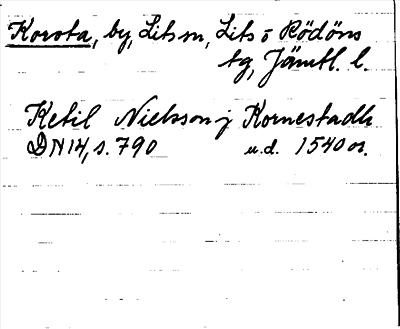 Korsta, by, Lits sn, Lits o Rödöns
tg, Jämtl. l.
Ketil Nielsson j Kornestadh
DN 14, s. 790 u.d. 1540 or.